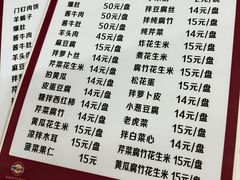 门钉肉饼
羊蝎子
爆肚
酱牛肚
羊头
麻豆
爆肚 50元/盘
酱牛肉 50元/盘
酱牛肚 50元/盘
羊头肉 45元/盘
麻豆腐
拌萝卜丝 14元/盘
拍黄瓜 14元/盘
皮蛋豆腐 14元/盘
糖拌西红柿 14元/盘
芹菜花生米 14元/盘
黄瓜花生米 15元/盘
凉拌木耳 15元/盘
菠菜果仁 15元
拌豆腐丝 14元/盘
拌纯腐竹 15元/盘
芹菜腐竹 15元/盘
炸花生米 15元/盘
煮花生米 15元/盘
腐竹花生米 15元/盘
松花蛋 15元/盘
拌萝卜皮 14元/盘
小葱豆腐 14元/盘
老虎菜 14元/盘
拌白菜心 14元/盘
芹菜腐竹花生米 15元/盘
黄瓜腐竹花生米 15元/盘